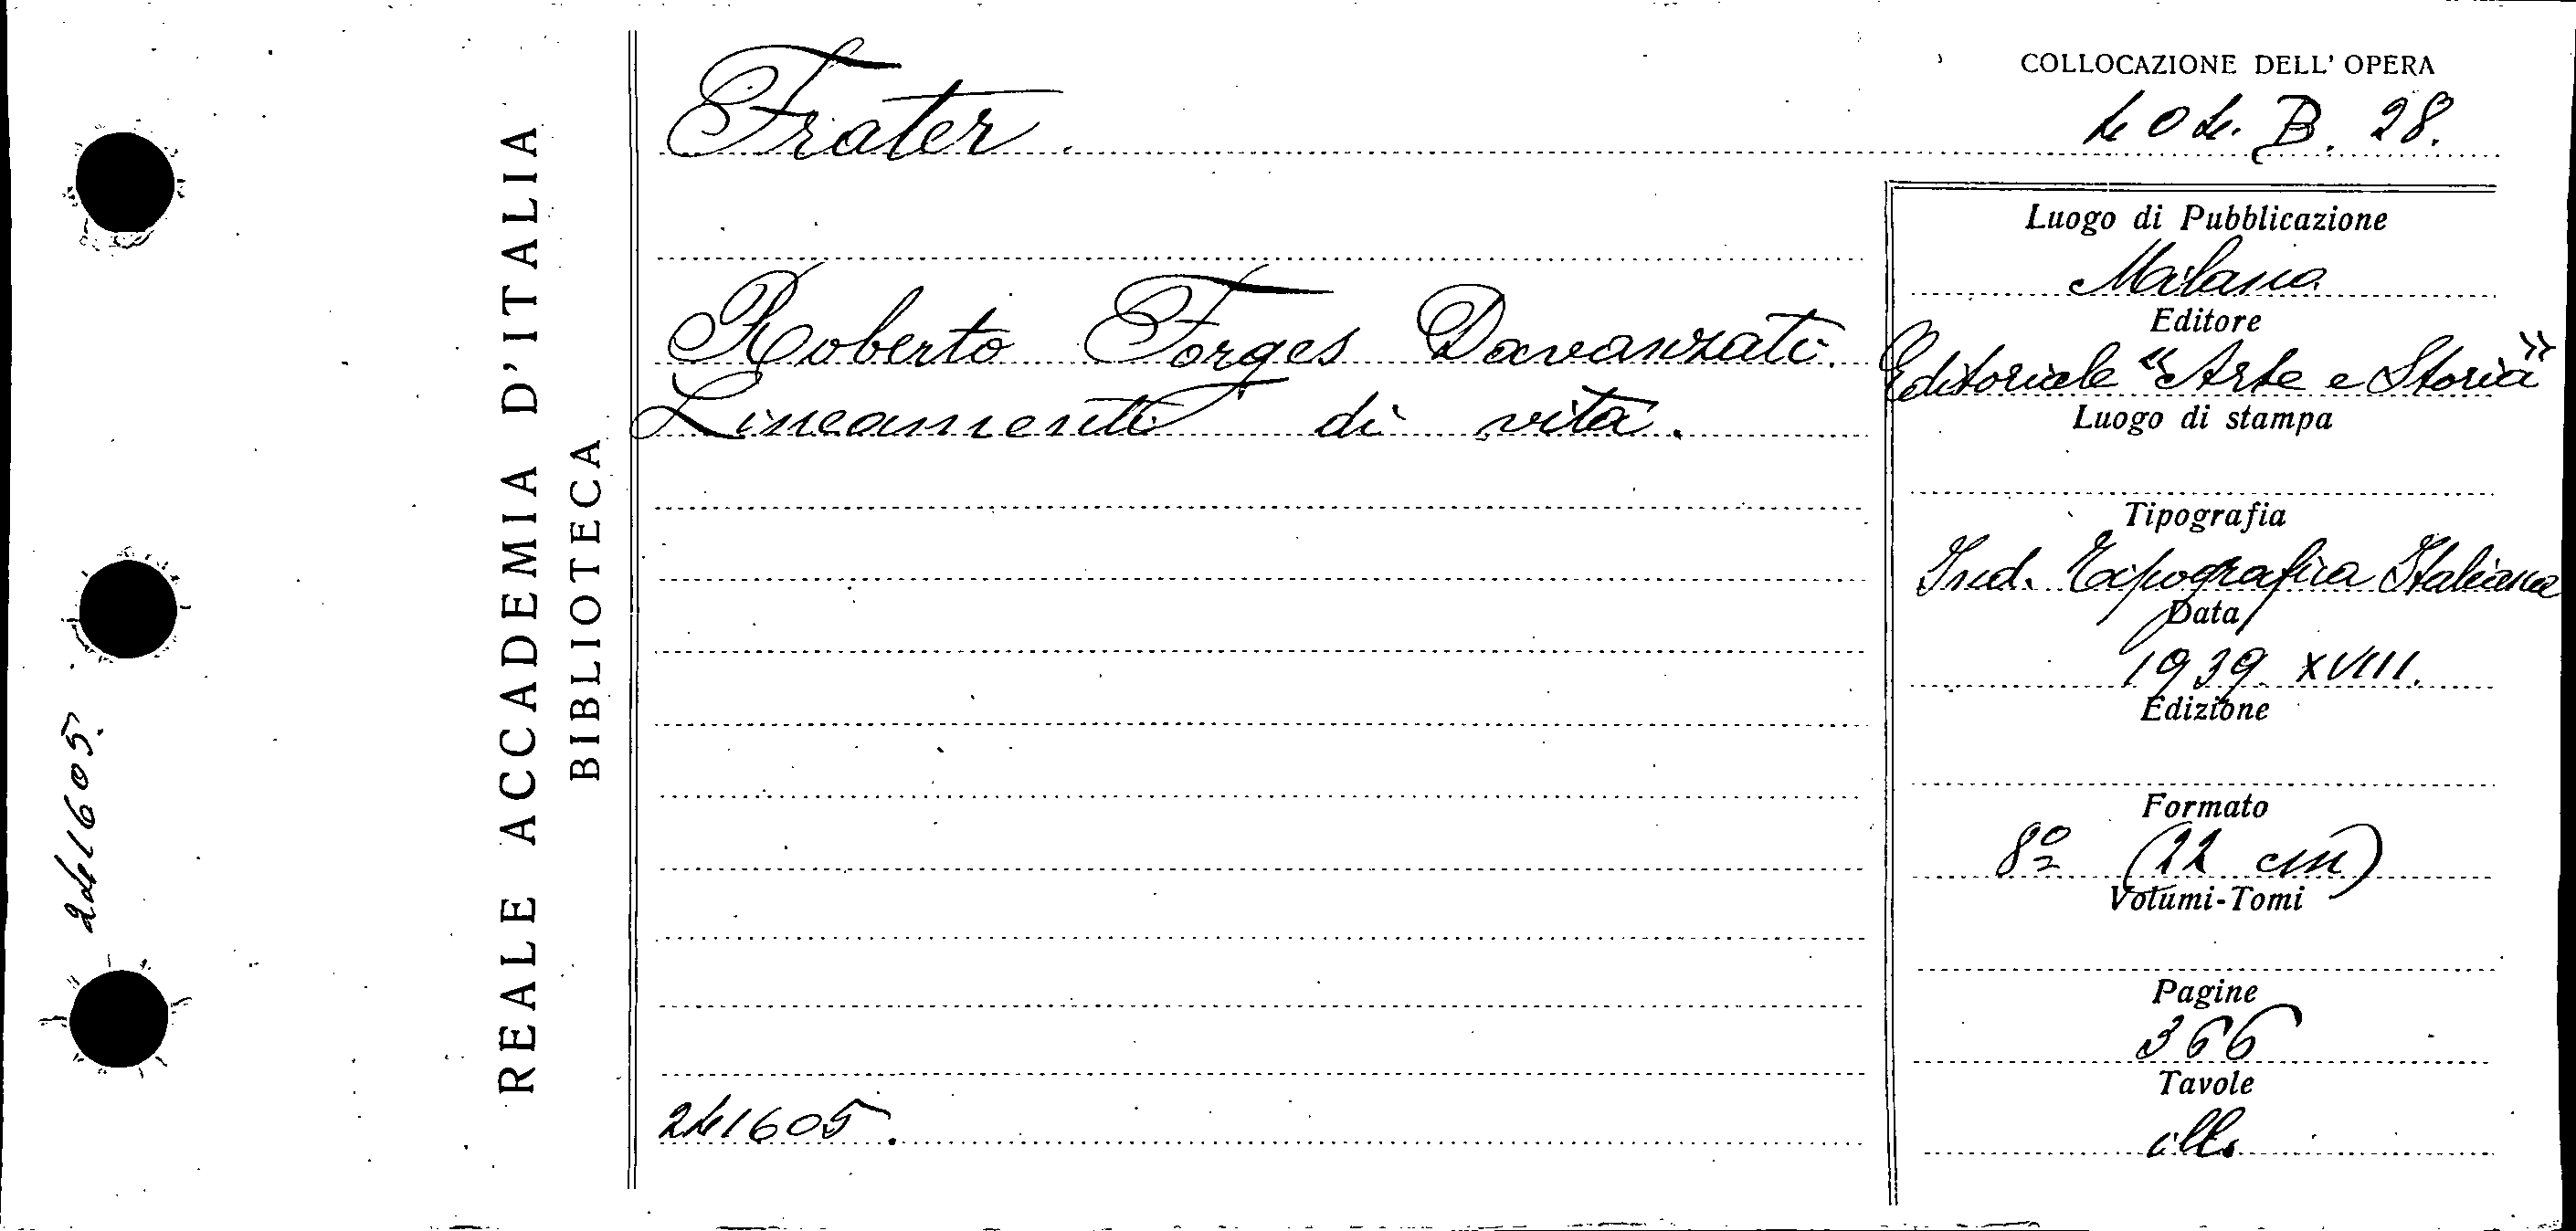 REALE ACCADEMIA D'ITALIA
BIBLIOTECA
241605.
Frater.
Roberto Forges Davanzati.
Lineamenti di vita.
241605.
COLLOCAZIONE DELL' OPERA
404. B. 28.
Luogo di Pubblicazione
Milano
Editore
Editoriale "Arte e Storia"
Luogo di stampa
Tipografia
Ind. Tipografica Italiana
Data
1939. XVIII.
Edizione
Formato
8º (22 cm)
Volumi-Tomi
Pagine
366
Tavole
ill.